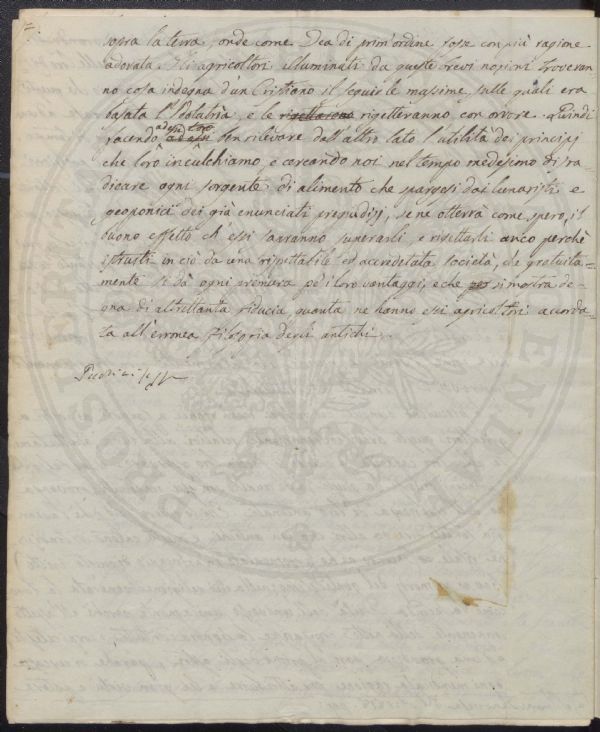 sopra la terra, onde come Dea di prim'ordine fosse con più ragione
adorata. Gli agricoltori illuminati da queste brevi nozioni troveran=
no cosa indegna d'un Cristiano il seguir le massime, sulle quali era
basata l'Idolatria, e le rigettarono rigetteranno con orrore. Quindi
facendo ad essi loro ben rilevare dall'altro lato l'utilità dei principj
che loro inculchiamo, e cercando noi nel tempo medesimo di sra=
dicare ogni sorgente di alimento che spargesi dai lunaristi, e
geoponici dei già enunciati pregiudizj, se ne otterrà come spero, il
buono effetto ch'essi sapranno superarli, e rigettarli anco perchè
istrutti in ciò da una rispettabile ed accreditata società, che gratuita=
mente si dà ogni premura pe' i loro vantaggi, e che si mostra de=
gna di altrettanta fiducia, quanta ne hanno essi agricoltori accorda=
ta all'erronea filosofia degli antichi.
PROSPERITATI